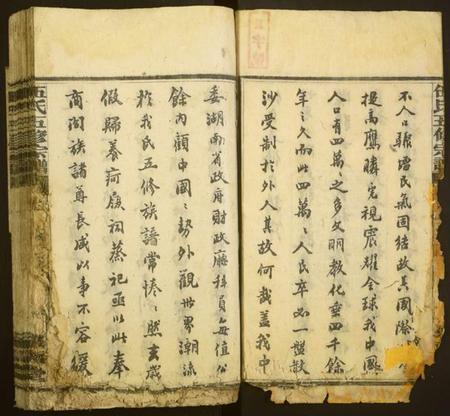 伍氏五修宗譜
不人口驟增民氣固結故其國際
提高鷹瞵虎視震耀全球我中國
人口有四萬萬之多文明教化垂四千餘
年之久而此四萬萬人民卒如一盤散
沙受制於外人其故何哉蓋我中
委湖南省政府財政廳科員每值公
餘內顧中國之勢外觀世界潮流
於我民五修族譜常惓惓然玄歲
假歸養疴展祠蒸祀亟以此奉
商闔族諸尊長咸以事不容緩
伍氏五修宗譜